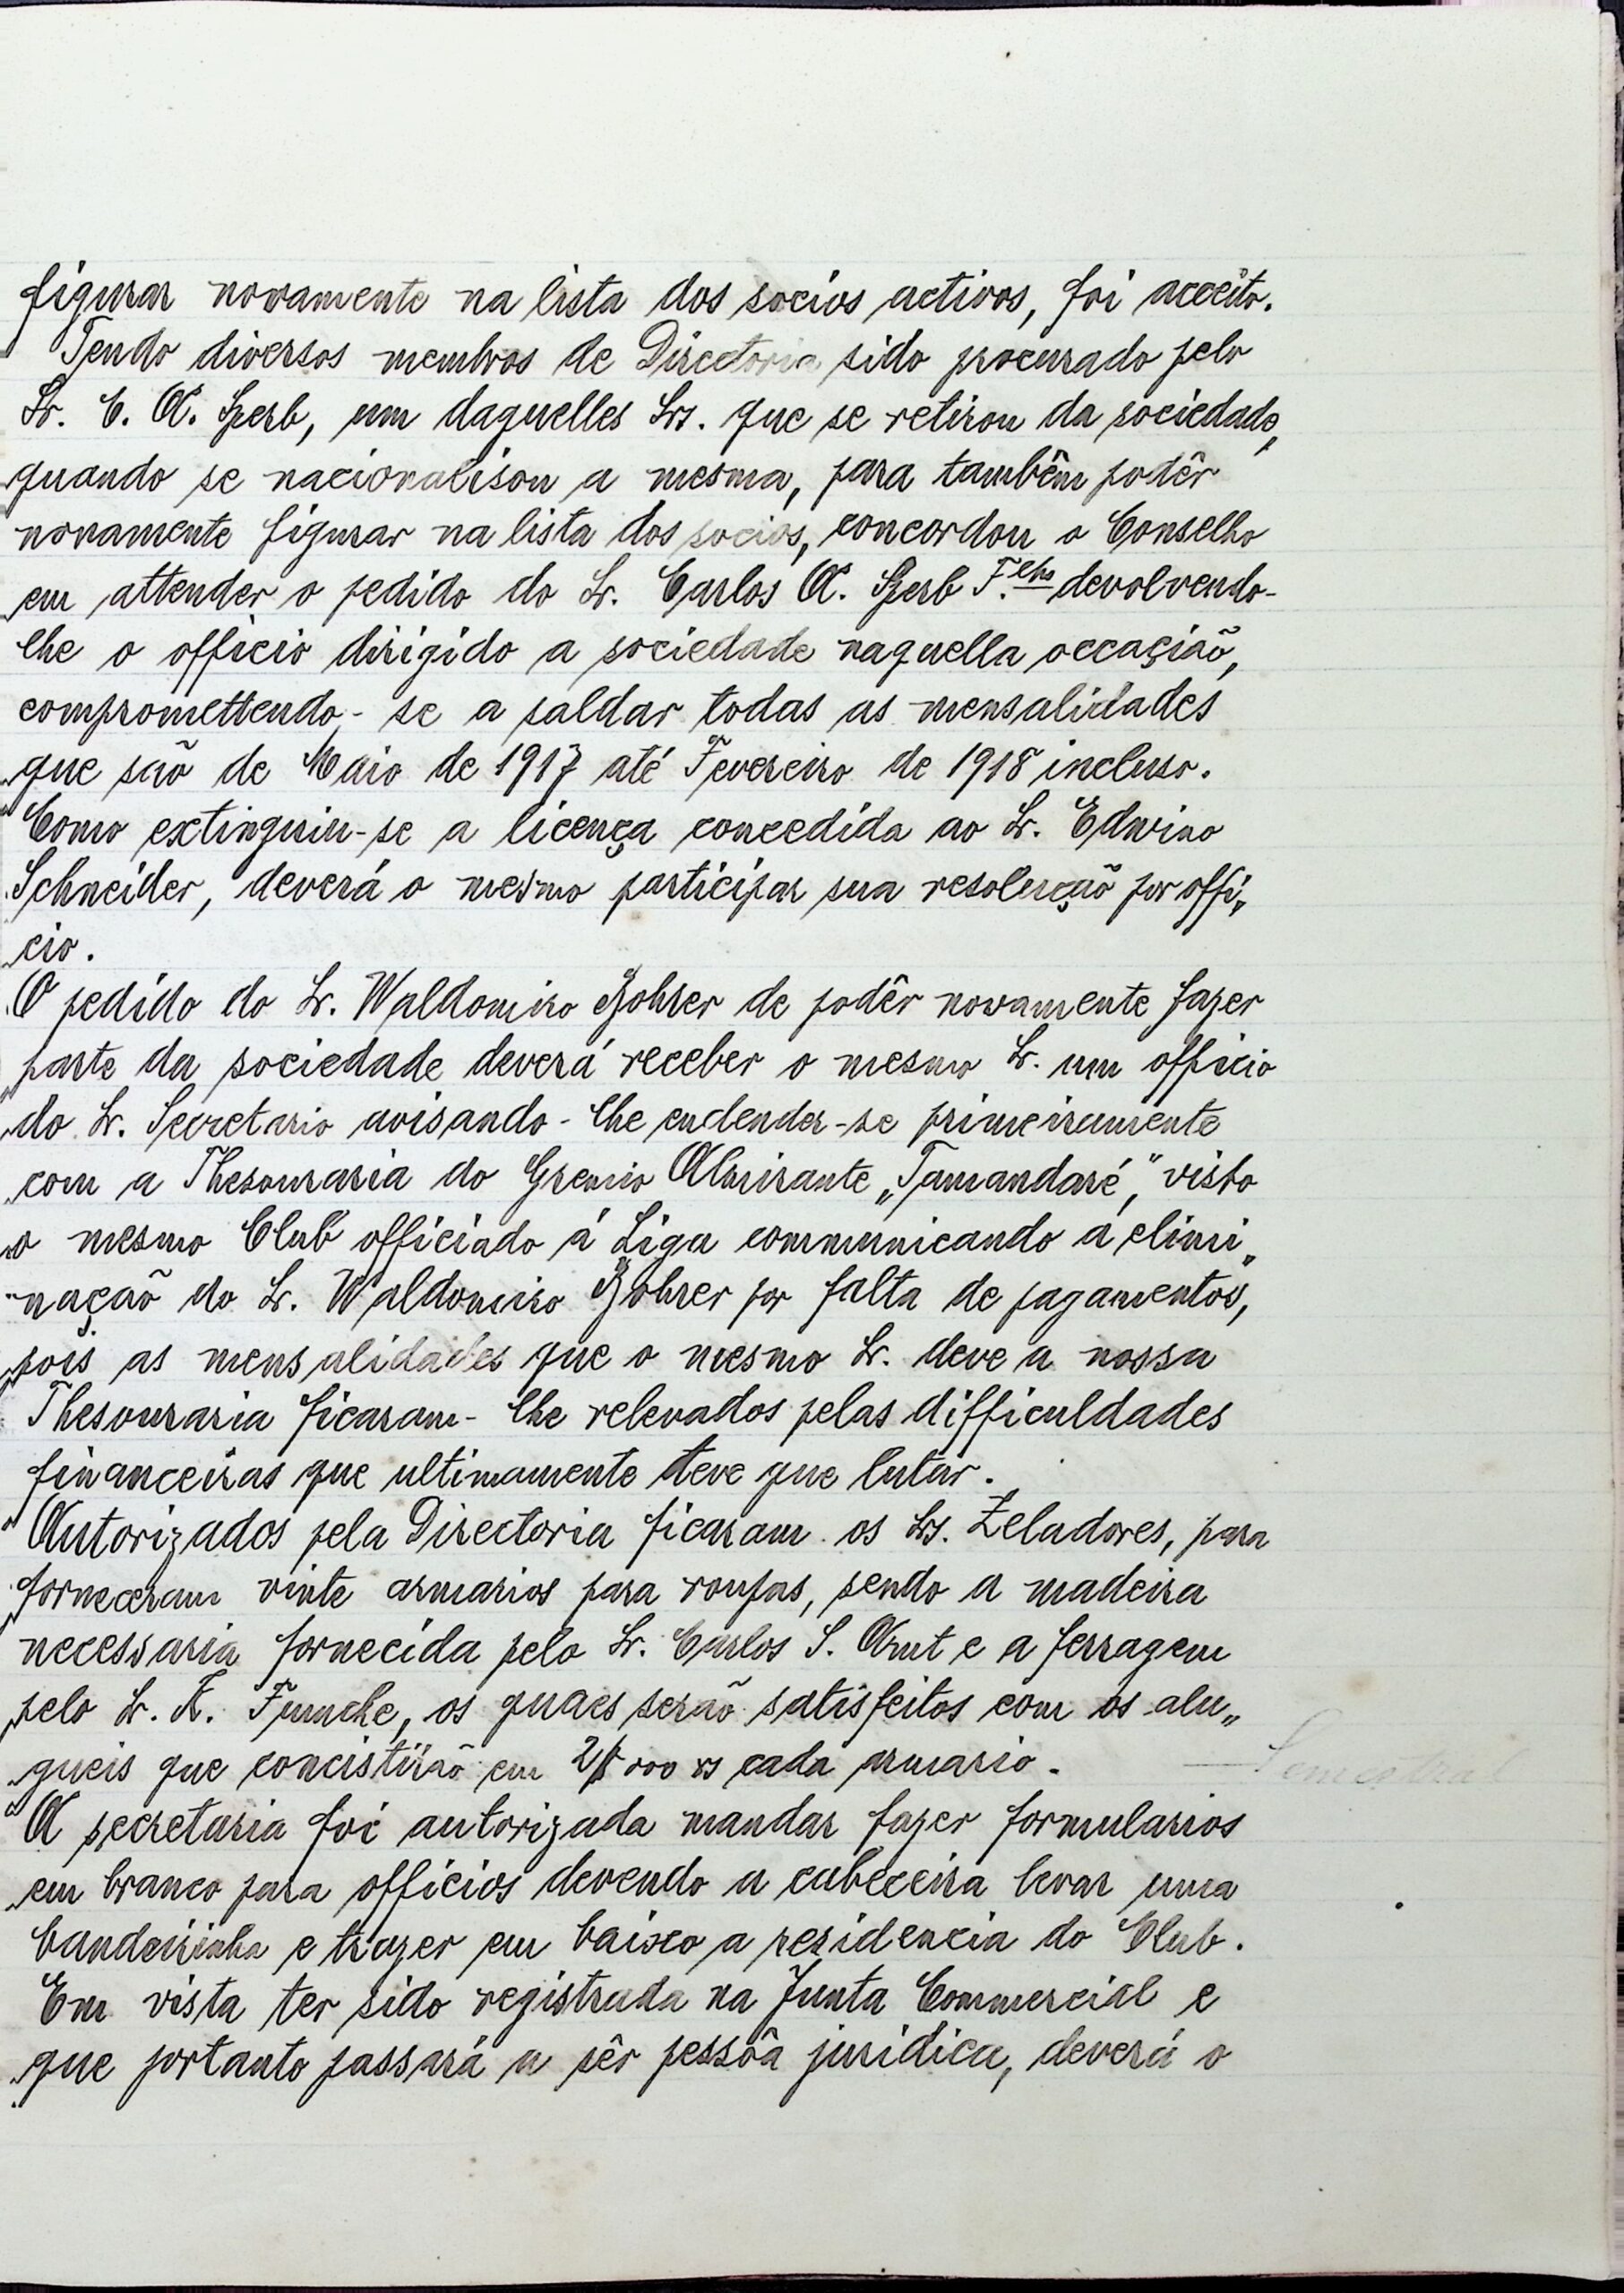 figurar novamente na lista dos socios activos, foi acceito.
Tendo diversos membros de Directoria sido procurado pelo
Sr. C. A. Sperb, um daquelles Srs. que se retirou da sociedade,
quando se nacionalisou a mesma, para tambêm podêr
novamente figurar na lista dos socios, concordou o Conselho
em attender o pedido do Sr. Carlos A. Sperb F.elho devolvendo-
lhe o officio dirigido a sociedade naquella occaçião,
compromettendo-se a saldar todas as mensalidades
que são de Maio de 1917 até Fevereiro de 1918 incluso.
Como extinguiu-se a licença concedida ao Sr. Edwino
Schneider, deverá o mesmo participar sua resolução por offi„
cio.
O pedido do Sr. Waldomiro Bohrer de podêr novamente fazer
parte da sociedade deverá receber o mesmo Sr. um officio
do Sr. Secretario avisando-lhe endender-se primeiramente
com a Thesouraria do Gremio Almirante „Tamandaré", visto
o mesmo Club officiado á Liga communicando a elimi„
nação do Sr. Waldomiro Bohrer por falta de pagamentos,
pois as mensalidades que o mesmo Sr. deve a nossa
Thesouraria ficaram-lhe relevados pelas difficuldades
financeiras que ultimamente teve que lutar.
Autorizados pela Directoria ficaram os Srs. Zeladores, para
forneceram vinte armarios para roupas, sendo a madeira
necessaria fornecida pelo Sr. Carlos S. Arnt e a ferragem
pelo Sr. os quaes serão satisfeitos com os alu„
gueis que concistirão em 2$000 rs cada armario. — Semestral
A secretaria foi autorizada mandar fazer formularios
em branco para officios devendo a cabeceira levar uma
bandeirinha e trazer em baixo a residencia do Club.
Em vista ter sido registrada na Junta Commercial e
que portanto passará a sêr pessôa juridica, deverá o